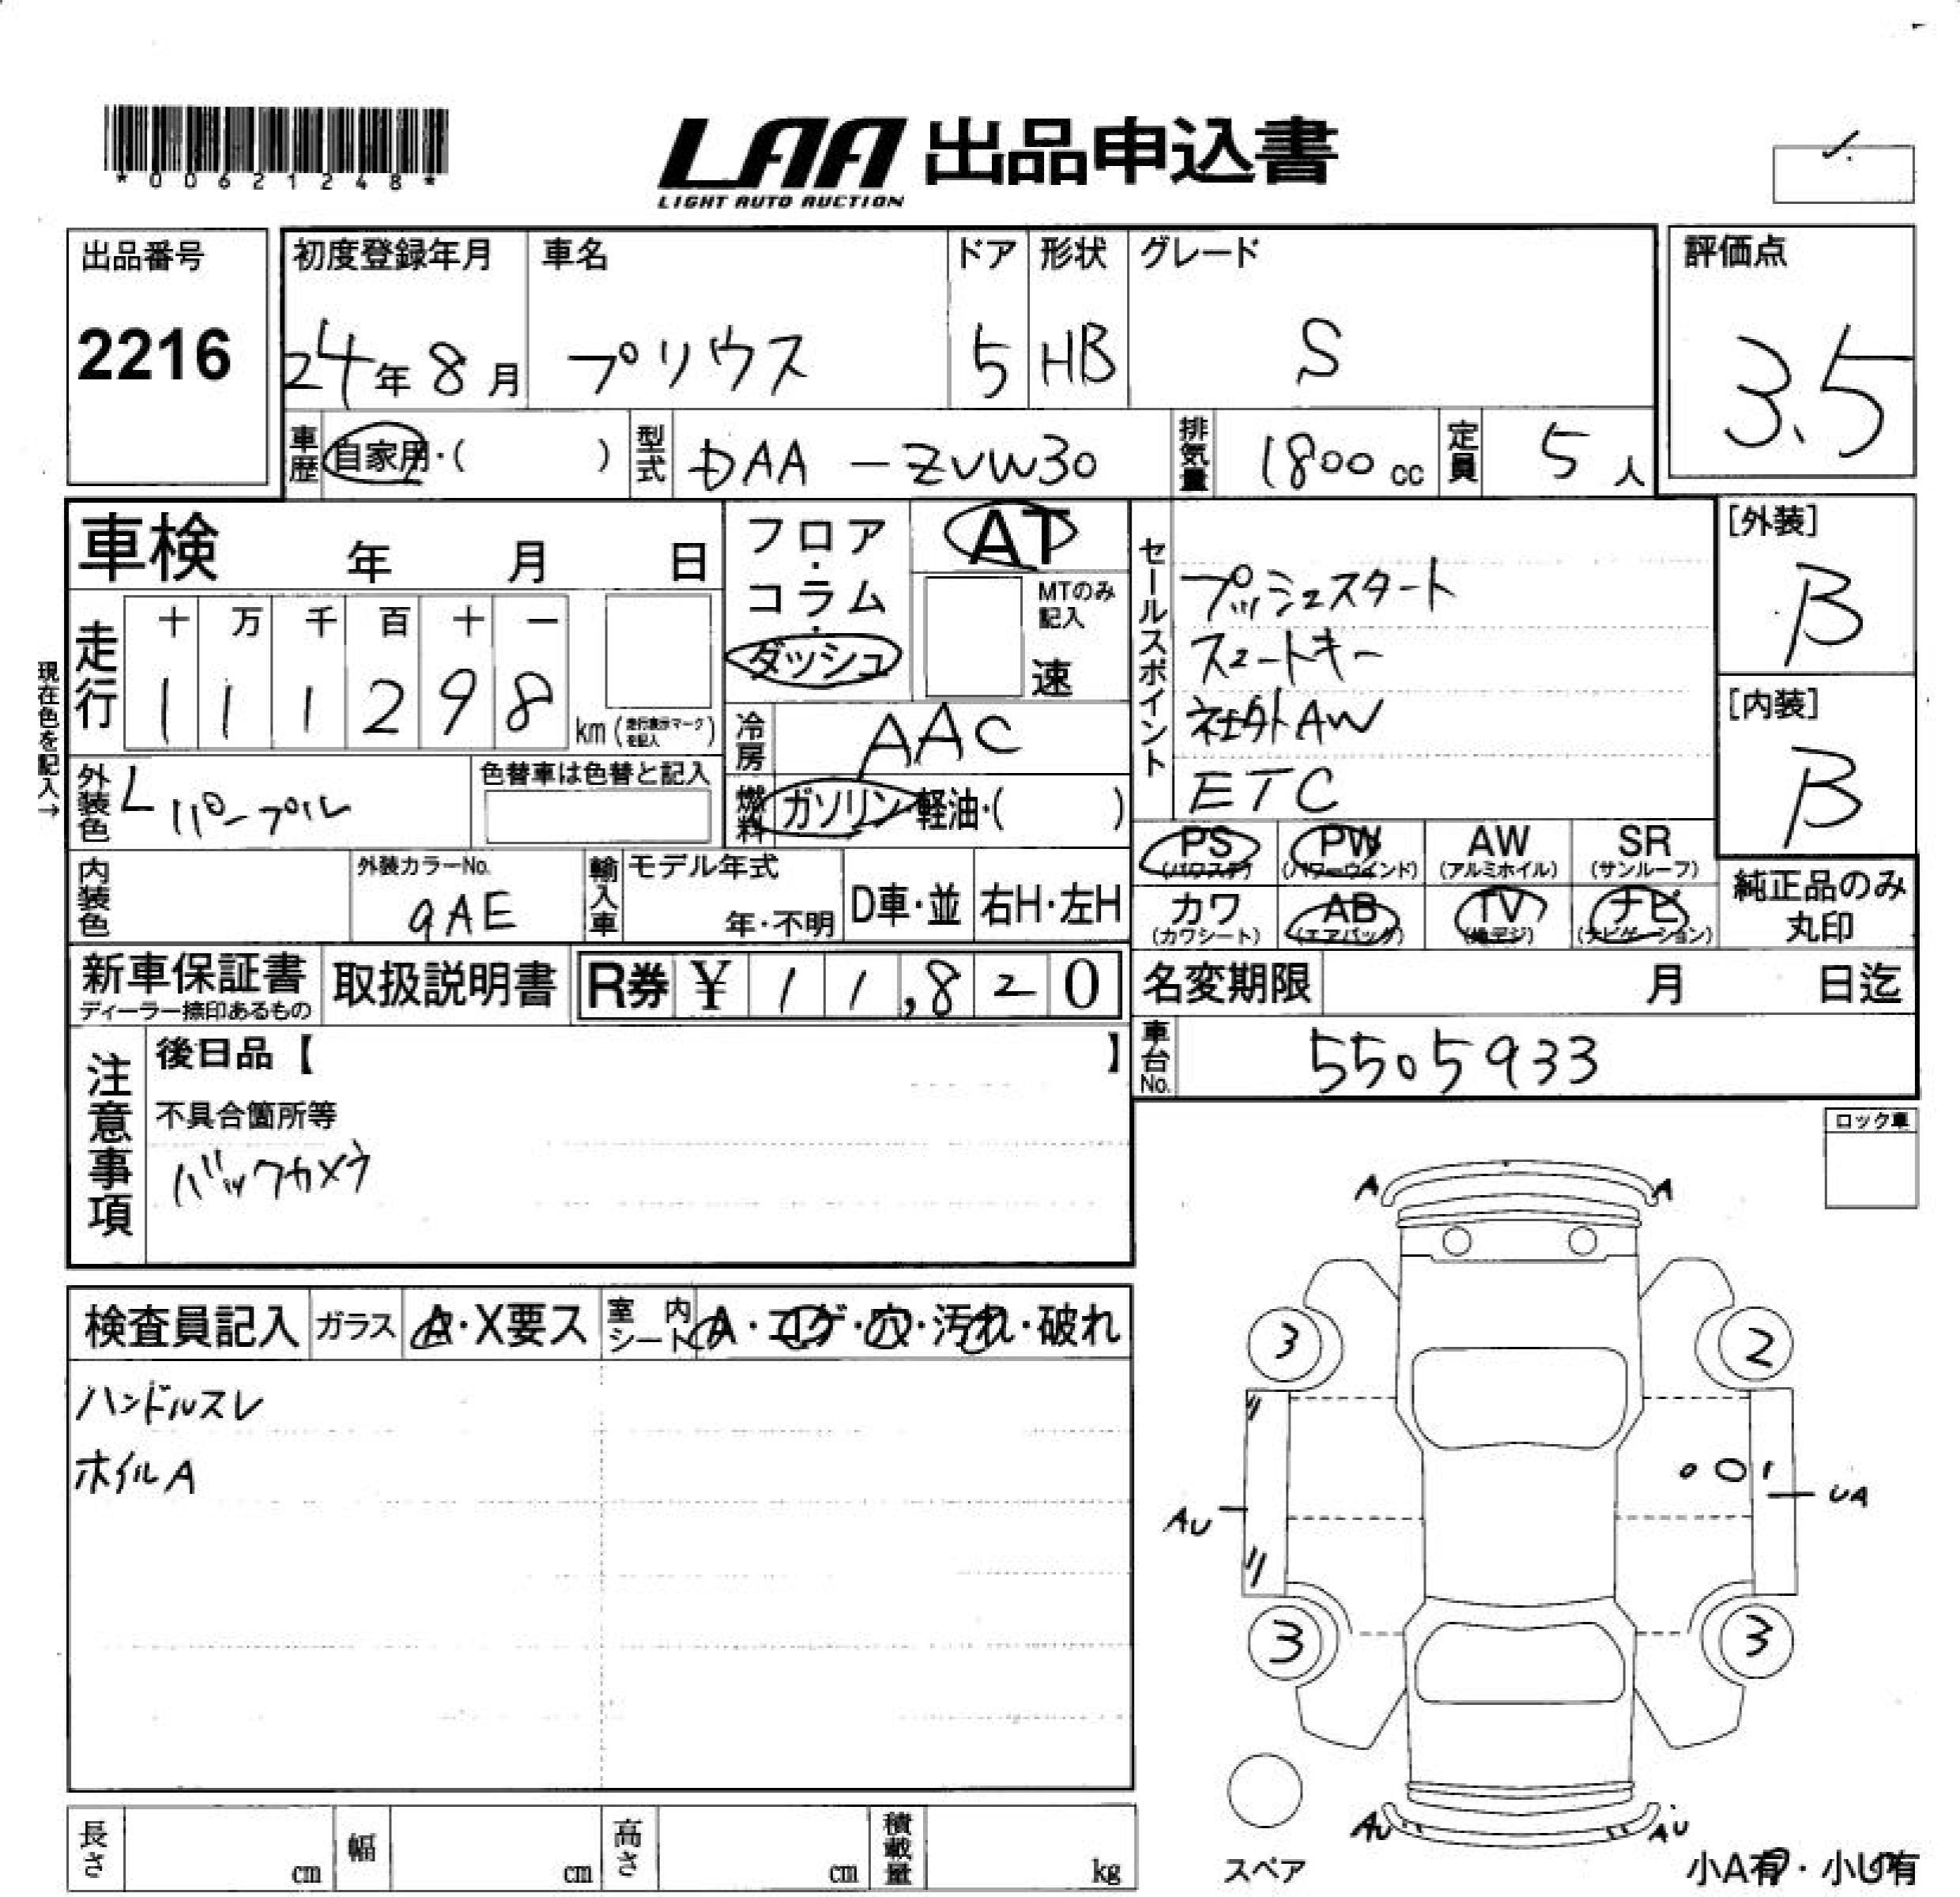 *00621248*
LAA 出品申込書
LIGHT AUTO AUCTION
出品番号
2216
初度登録年月
24年8月
車名
プリウス
ドア
5
形状
HB
グレード
S
評価点
3.5
車歴
自家用・( )
型式
DAA-ZVW30
排気量
1800cc
定員
5人
車検 年 月 日
フロア・コラム・ダッシュ
AT
MTのみ記入
速
セールスポイント
プッシュスタート
スマートキー
社外AW
ETC
[外装]
B
[内装]
B
現在色を記入→
走行
十 万 千 百 十 一
1 1 1 2 9 8
km (走行表示マークを記入)
冷房
AAC
外装色
L パープル
色替車は色替と記入
燃料
ガソリン・軽油・( )
PS AW SR PW
(パワステ) (パワーウインド) (アルミホイル) (サンルーフ)
カワ AB TV ナビ
(カワシート) (エアバッグ) (地デジ) (ナビゲーション)
純正品のみ丸印
内装色
外装カラーNo.
9AE
輸入車
モデル年式
年・不明
D車・並
右H・左H
新車保証書
ディーラー捺印あるもの
取扱説明書
R券 ¥ 11,820
名変期限 月 日迄
車台No.
5505933
注意事項
後日品【 】
不具合箇所等
バックカメラ
ロック車
検査員記入
ガラス
A・X要ス
室内シート
A・コゲ・穴・汚れ・破れ
ハンドルスレ
ホイルA
A A
3 2
AU UA
3 3
AU AU
スペア
小A有・小U有
長さ cm
幅 cm
高さ cm
積載量 kg